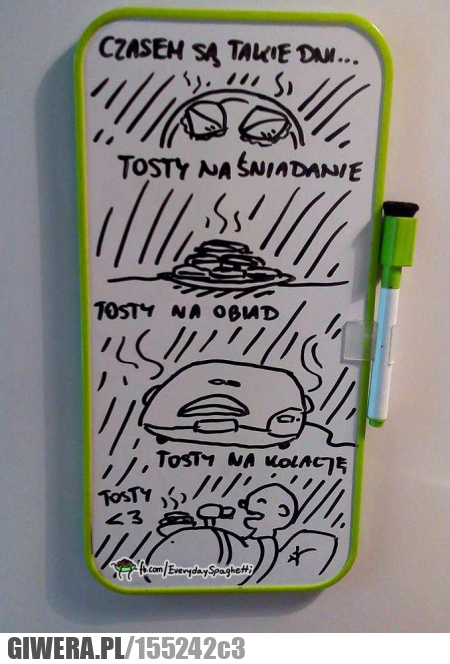 CZASEM SĄ TAKIE DNI...
TOSTY NA ŚNIADANIE
TOSTY NA OBIAD
TOSTY NA KOLACJĘ
TOSTY
<3
fb.com/EverydaySpaghetti
GIWERA.PL/155242c3